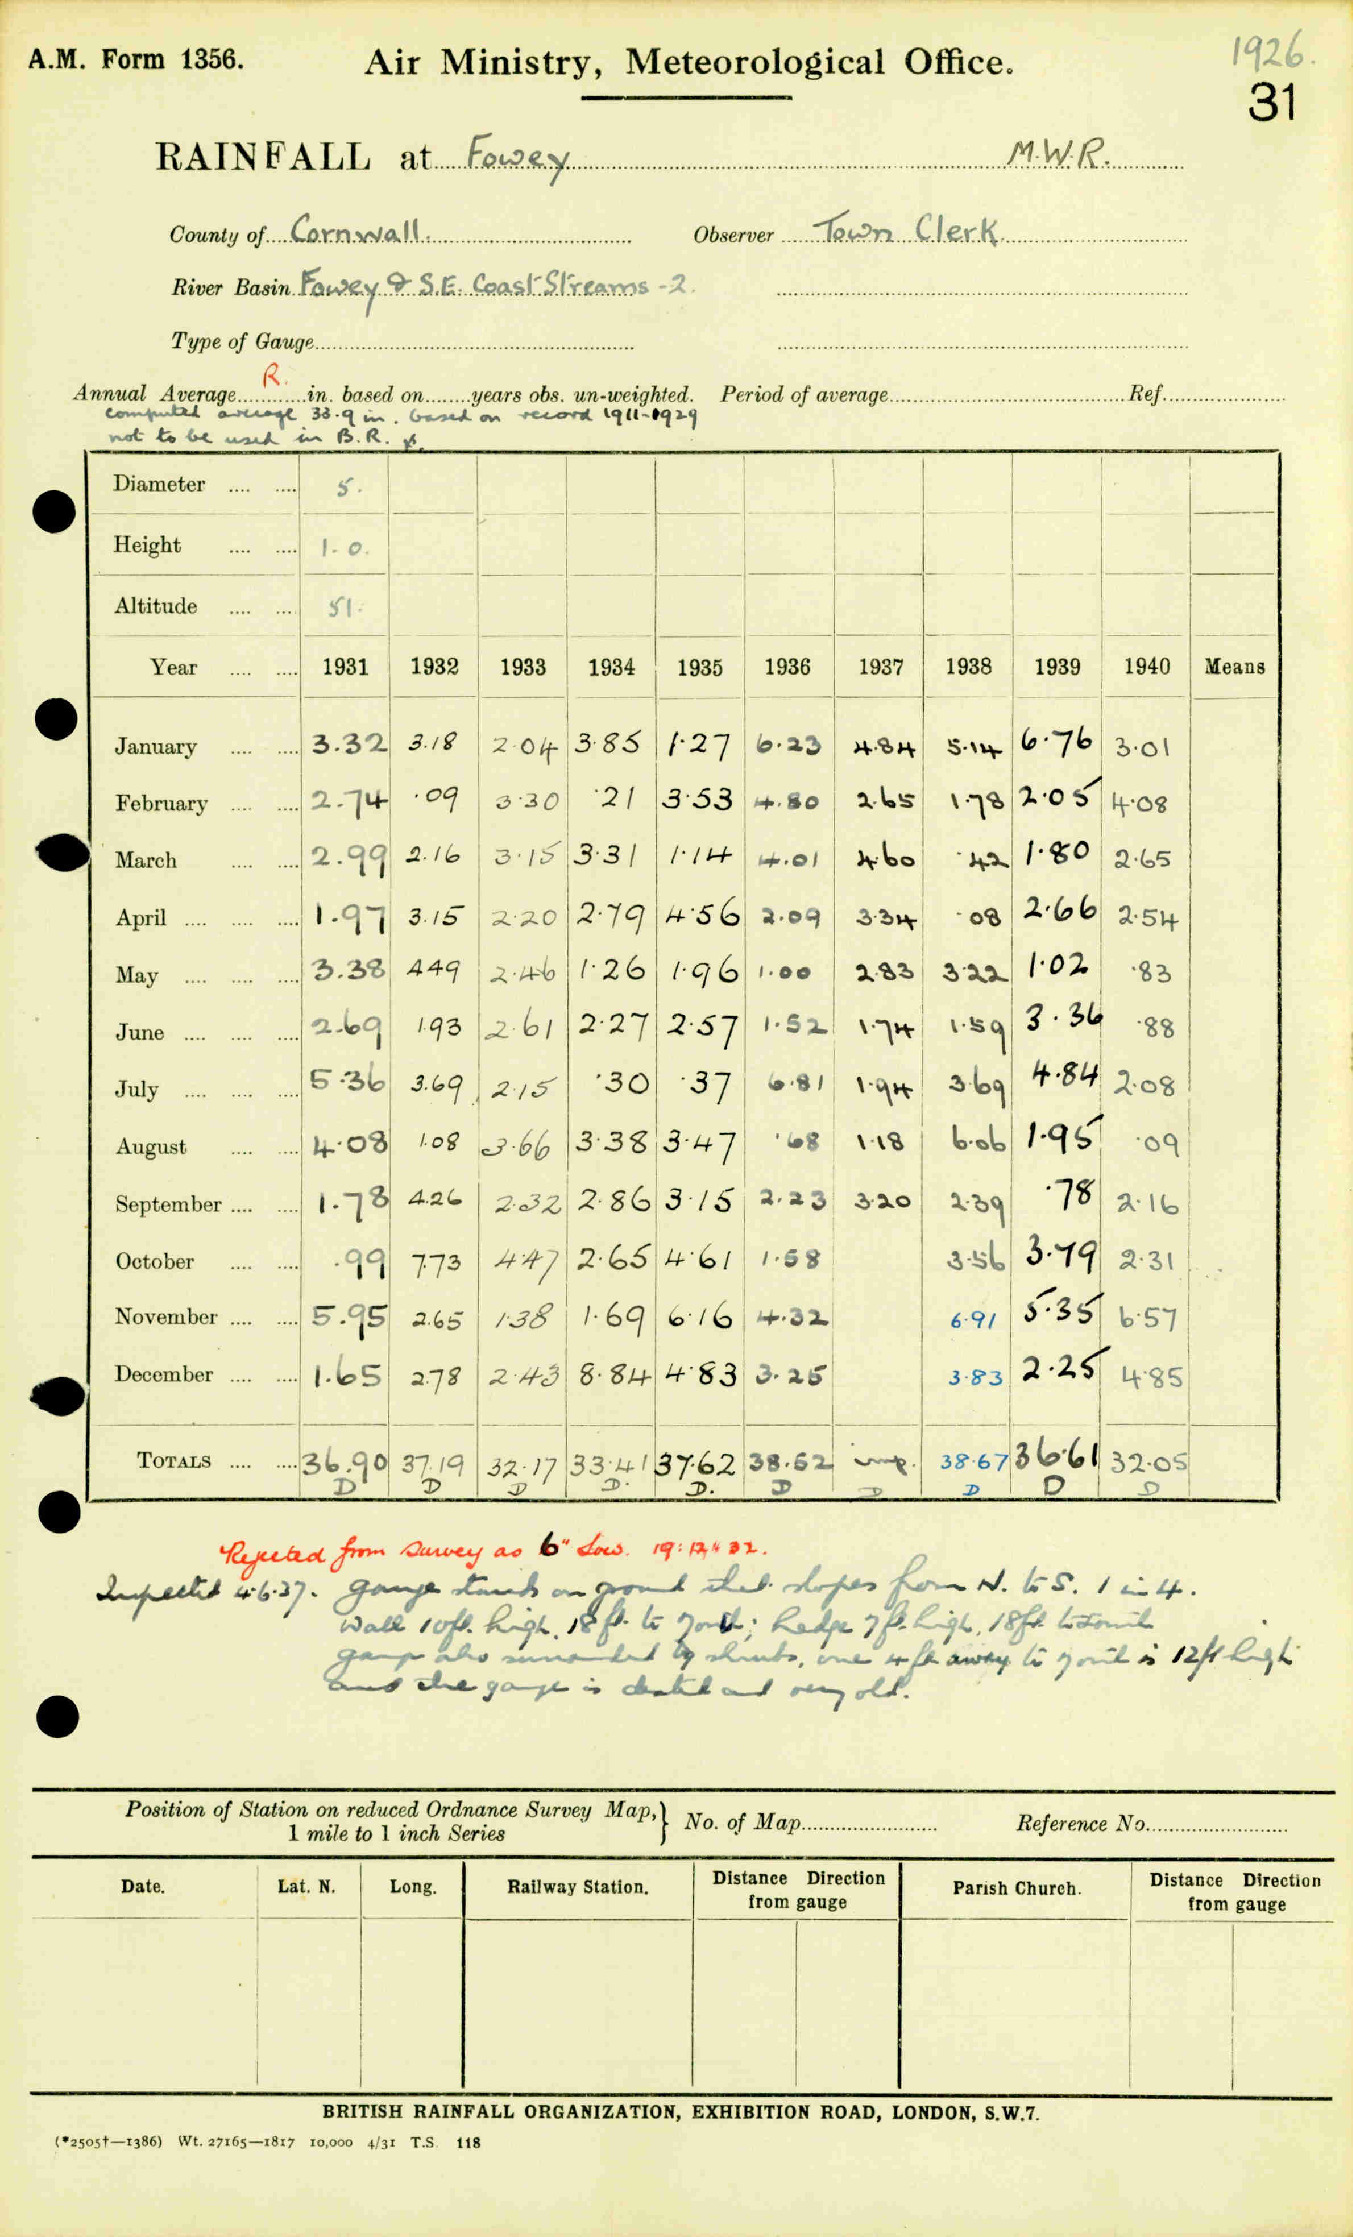 A.M. Form 1356.
Air Ministry, Meteorological Office.
1926.
31
RAINFALL at Fowey M.W.R.
County of Cornwall. Observer Town Clerk
River Basin Fowey & S.E. Coast Streams - 2.
Type of Gauge
R.
Annual Average in. based on years obs. un-weighted. Period of average Ref.
computed average 33.9 in. based on record 1911-1929
not to be used in B.R.
Diameter 5.
Height 1-0.
Altitude 51.
Year 1931 1932 1933 1934 1935 1936 1937 1938 1939 1940 Means
January 3.32 3.18 2.04 3.85 1.27 6.23 4.84 5.14 6.76 3.01
February 2.74 .09 3.30 .21 3.53 4.80 2.65 1.78 2.05 4.08
March 2.99 2.16 3.15 3.31 1.14 4.01 4.60 .42 1.80 2.65
April 1.97 3.15 2.20 2.79 4.56 2.09 3.34 .08 2.66 2.54
May 3.38 4.49 2.46 1.26 1.96 1.00 2.83 3.22 1.02 .83
June 2.69 1.93 2.61 2.27 2.57 1.52 1.74 1.59 3.36 .88
July 5.36 3.69 2.15 .30 .37 6.81 1.94 3.69 4.84 2.08
August 4.08 1.08 3.66 3.38 3.47 .68 1.18 6.06 1.95 .09
September 1.78 4.26 2.32 2.86 3.15 2.23 3.20 2.39 .78 2.16
October .99 7.73 4.47 2.65 4.61 1.58 3.56 3.79 2.31
November 5.95 2.65 1.38 1.69 6.16 4.32 6.91 5.35 6.57
December 1.65 2.78 2.43 8.84 4.83 3.25 3.83 2.25 4.85
TOTALS 36.90 37.19 32.17 33.41 37.62 38.52 imp. 38.67 36.61 32.05
D D D D. D. D D D D D
Rejected from survey as 6" Low. 19:12:32.
Inspected 4.6.37. gauge stands on ground that slopes from N. to S. 1 in 4.
Wall 10ft. high, 18ft. to North; hedge 7ft. high, 18ft. to South
gauge also surrounded by shrubs, one 4ft away to North is 12ft high
and the gauge is dented and very old.
Position of Station on reduced Ordnance Survey Map,} No. of Map Reference No.
1 mile to 1 inch Series
Date. Lat. N. Long. Railway Station. Distance Direction from gauge Parish Church. Distance Direction from gauge
BRITISH RAINFALL ORGANIZATION, EXHIBITION ROAD, LONDON, S.W.7.
(*2505†—1386) Wt. 27165—1817 10,000 4/31 T.S. 118